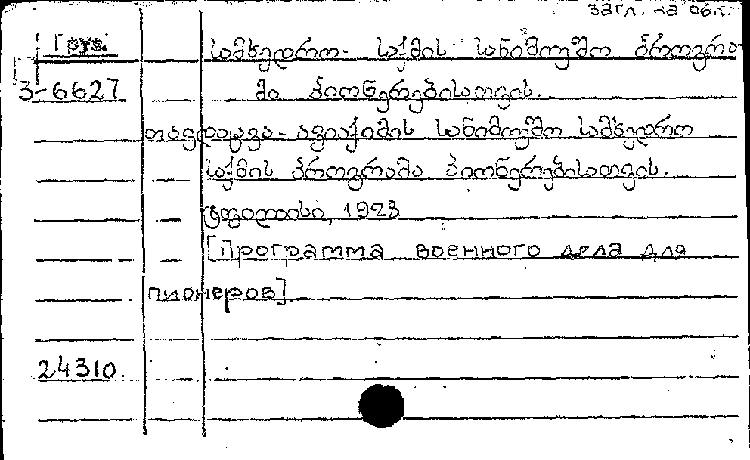 загл. на обл.
Груз. სამხედრო- საქმის სანიმუშო პროგრა-
3-6627 მა პიონერებისათვის.
თავდაცვა- ავიაქიმის სანიმუშო სამხედრო
საქმის პროგრამა პიონერებისათვის.
ტფილისი, 1923
[Программа военного дела для
пионеров]
24310.